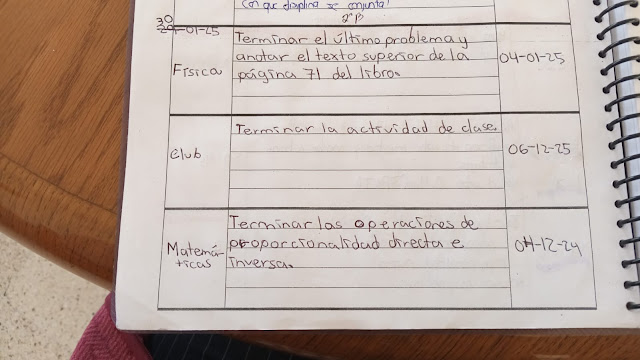 con que disciplina se conjunta?
2°B
30
29-01-25
Física
Terminar el último problema y
anotar el texto superior de la
página 71 del libro.
04-01-25
Club
Terminar la actividad de clase.
06-12-25
Matemá-
ticas
Terminar las operaciones de
proporcionalidad directa e
inversa.
04-12-24